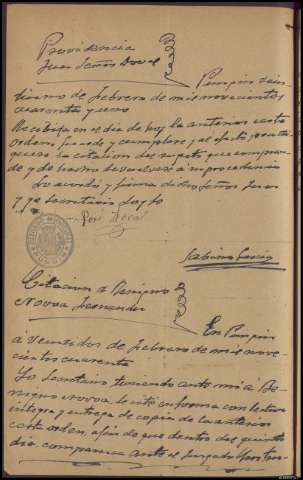 Providencia
Juez Señor Doval
Pungin vein
tiuno de febrero de mil novecientos
cuarenta y uno
Recibida en el día de hoy la anterior carta
orden, guarde y cumplase y al efecto practi
quese la citacion del sugeto que compren
de y de hecho devuelvase a su procedencia
Lo acordó y firma dicho Señor Juez
y yo Secretario doy fe
Citacion a Benigno
Novoa Fernandez
En Pungin
á veintidos de febrero de mil nove
cientos cuarenta
Yo Secretario teniendo ante mi á Be
nigno Novoa le cité en forma con lectura
integra y entrega de copia de la anterior
carta orden, afin de que dentro del quinto
dia, comparezca ante el Juzgado